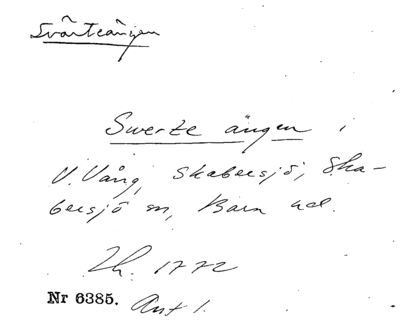 Svärteängen
Swerte ängen i
V. Vång, Skabersjö, Ska-
bersjö sn, Bara hd.
Lh. 1772
Nr 6385. Akt 1.